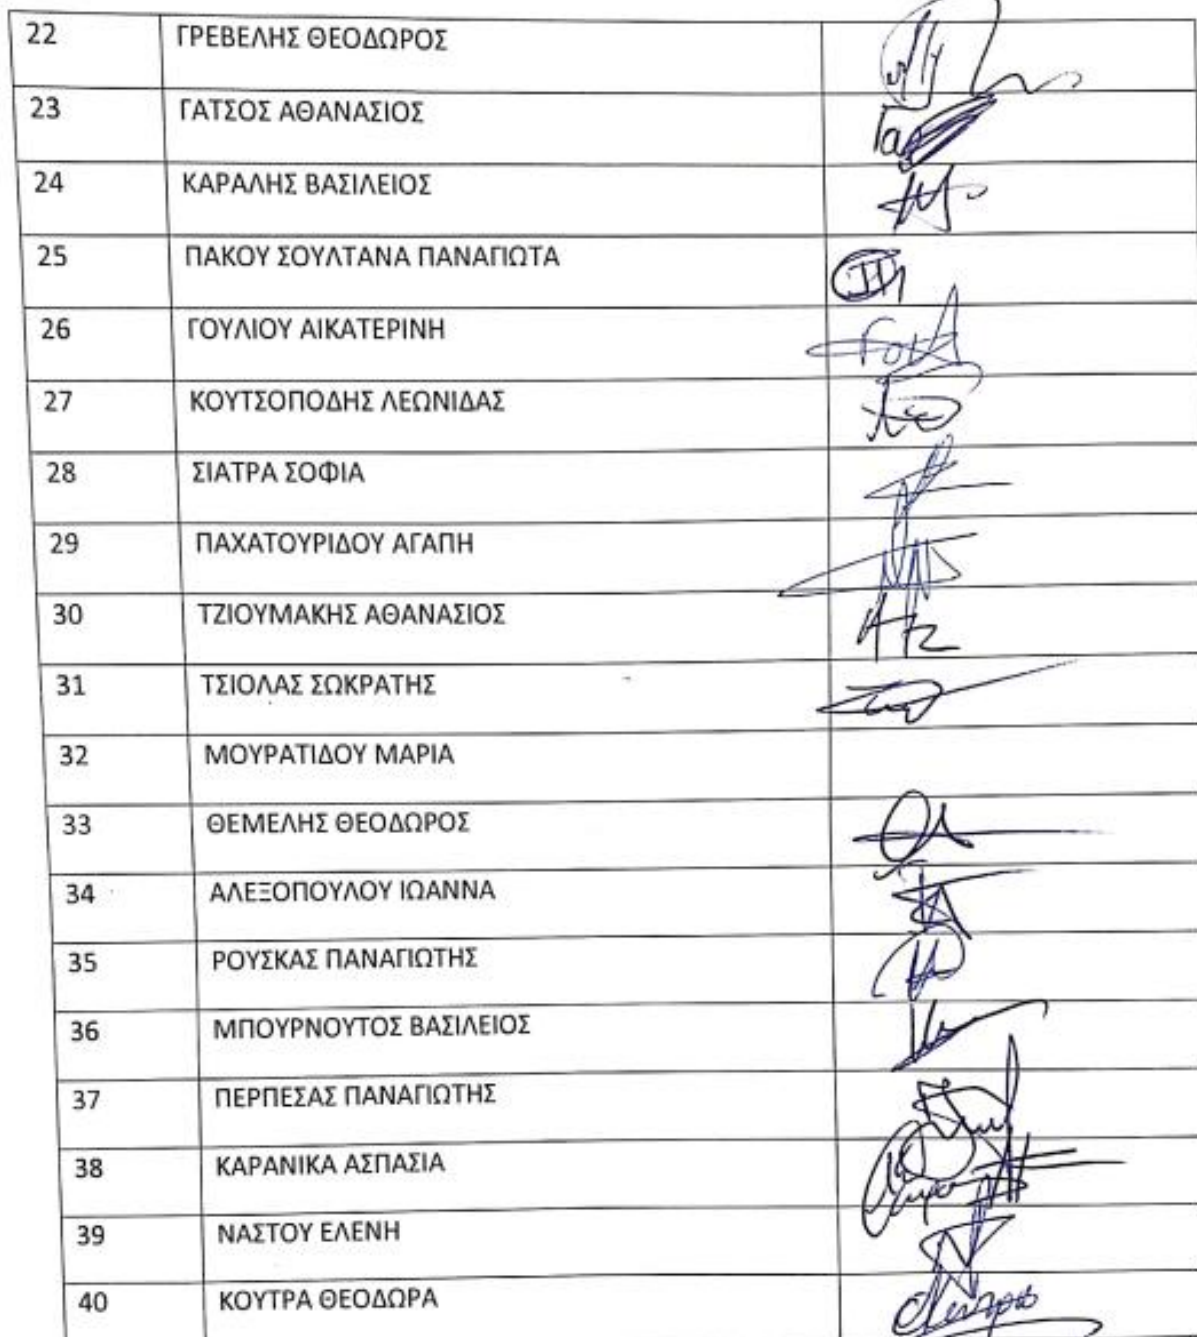 22 ΓΡΕΒΕΛΗΣ ΘΕΟΔΩΡΟΣ
23 ΓΑΤΣΟΣ ΑΘΑΝΑΣΙΟΣ
24 ΚΑΡΑΛΗΣ ΒΑΣΙΛΕΙΟΣ
25 ΠΑΚΟΥ ΣΟΥΛΤΑΝΑ ΠΑΝΑΓΙΩΤΑ
26 ΓΟΥΛΙΟΥ ΑΙΚΑΤΕΡΙΝΗ
27 ΚΟΥΤΣΟΠΟΔΗΣ ΛΕΩΝΙΔΑΣ
28 ΣΙΑΤΡΑ ΣΟΦΙΑ
29 ΠΑΧΑΤΟΥΡΙΔΟΥ ΑΓΑΠΗ
30 ΤΖΙΟΥΜΑΚΗΣ ΑΘΑΝΑΣΙΟΣ
31 ΤΣΙΟΛΑΣ ΣΩΚΡΑΤΗΣ
32 ΜΟΥΡΑΤΙΔΟΥ ΜΑΡΙΑ
33 ΘΕΜΕΛΗΣ ΘΕΟΔΩΡΟΣ
34 ΑΛΕΞΟΠΟΥΛΟΥ ΙΩΑΝΝΑ
35 ΡΟΥΣΚΑΣ ΠΑΝΑΓΙΩΤΗΣ
36 ΜΠΟΥΡΝΟΥΤΟΣ ΒΑΣΙΛΕΙΟΣ
37 ΠΕΡΠΕΣΑΣ ΠΑΝΑΓΙΩΤΗΣ
38 ΚΑΡΑΝΙΚΑ ΑΣΠΑΣΙΑ
39 ΝΑΣΤΟΥ ΕΛΕΝΗ
40 ΚΟΥΤΡΑ ΘΕΟΔΩΡΑ